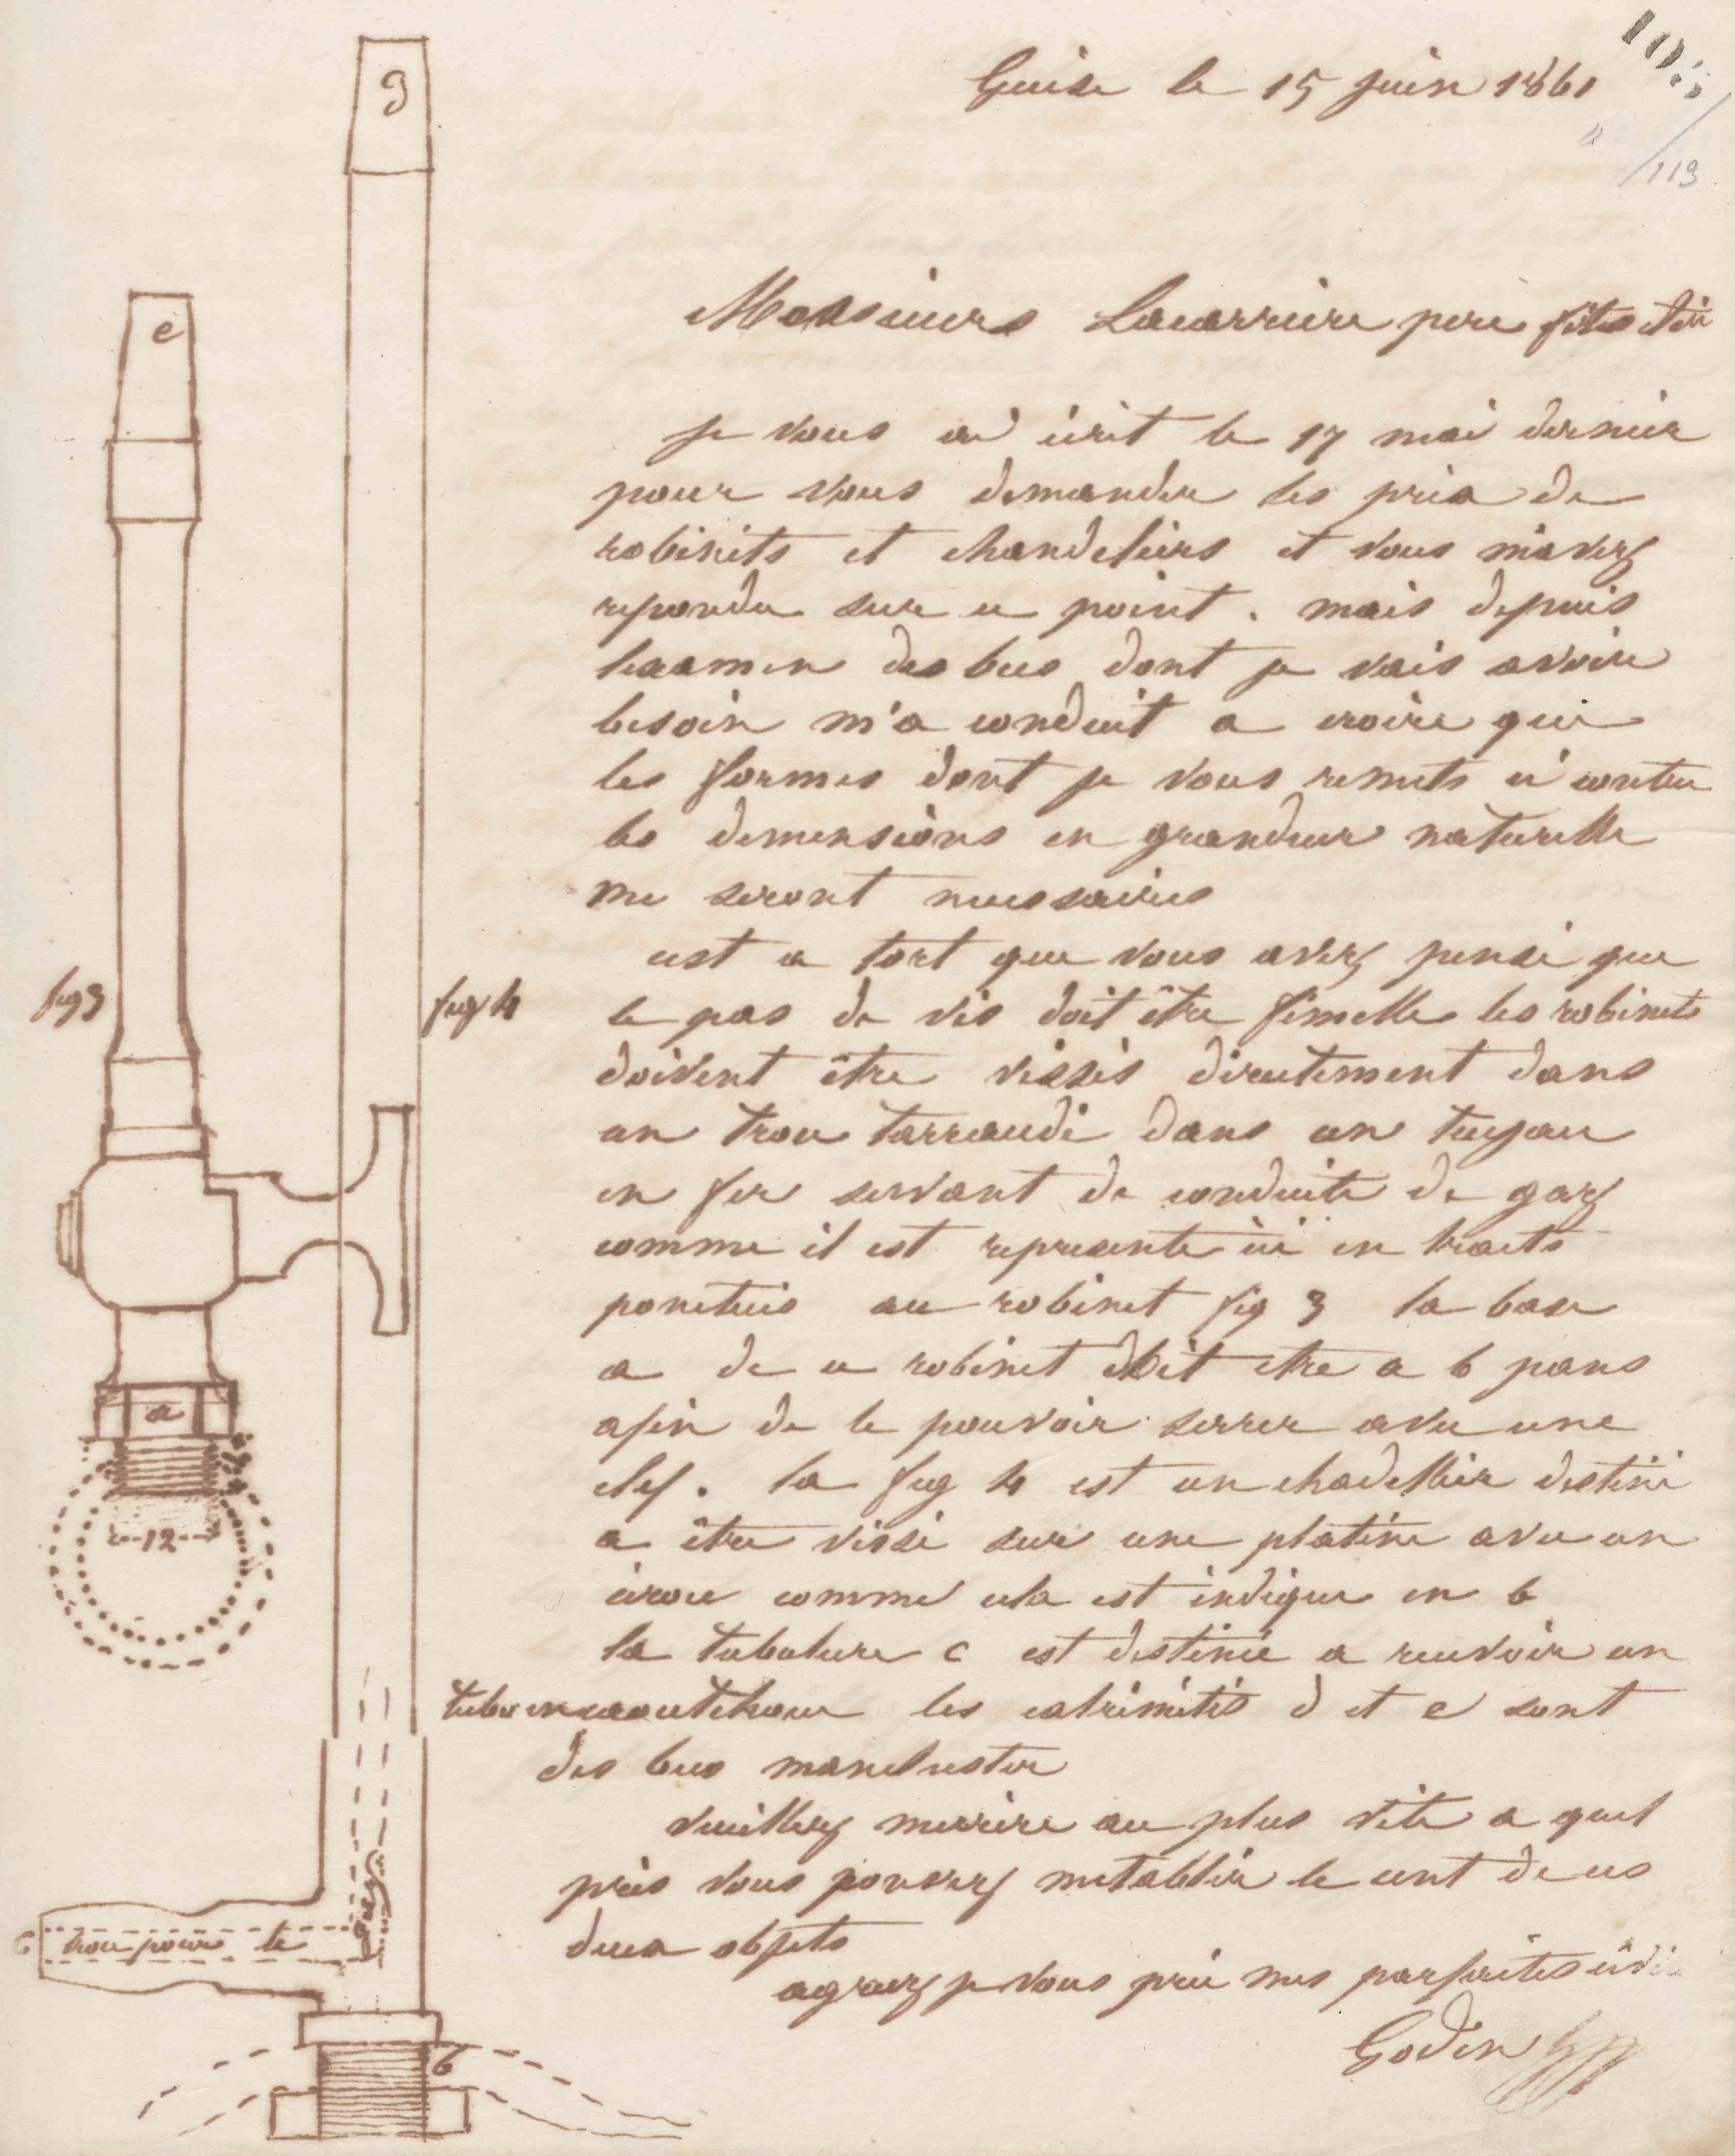 Guise le 15 juin 1861
103
119
Messieurs Lacarriere pere fils et cie
je vous ai ècrit le 17 mai dernier
pour vous demander les prix de
robinets et chandeliers et vous mavez
repondu sur ce point . mais depuis
lexamen des becs dont je vais avoir
besoin m'a conduit a croire que
les formes dont je vous remets ci contre
les dimensions en grandeur naturelle
me seront necessaires
cest a tort que vous avez pensé que
le pas de vis doit être femelle les robinets
doivent être vissés directement dans
un trou tarraudé dans un tuyau
en fer servant de conduite de gaz
comme il est represente ici en traits
ponctués au robinet fig 3 la base
a de ce robinet doit etre a 6 pans
afin de le pouvoir serrer avec une
clef . la fig 4 est un chadellier destiné
a être vissé sur une platine avec un
écrou comme cela est indiqué en b
la tubulure c est destinée a recevoir un
tube en caoutchouc les extrémités d et e sont
des becs manchester
veuillez mecrire au plus vite a quel
prix vous pouvez metablir le cent de ces
deux objets
agreez je vous prie mes parfaites civi
Godin
d
e
fig 3
fig 4
a
12
c trou pour le gaz
b